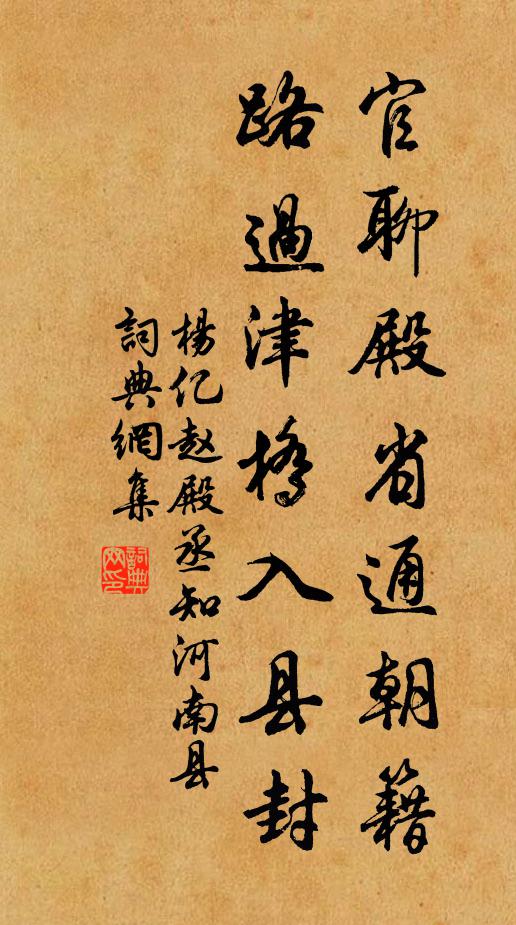 官聊殿省通朝籍
路過津橋入县封
楊亿赵殿丞知河南县
詞典網集
詞典網印